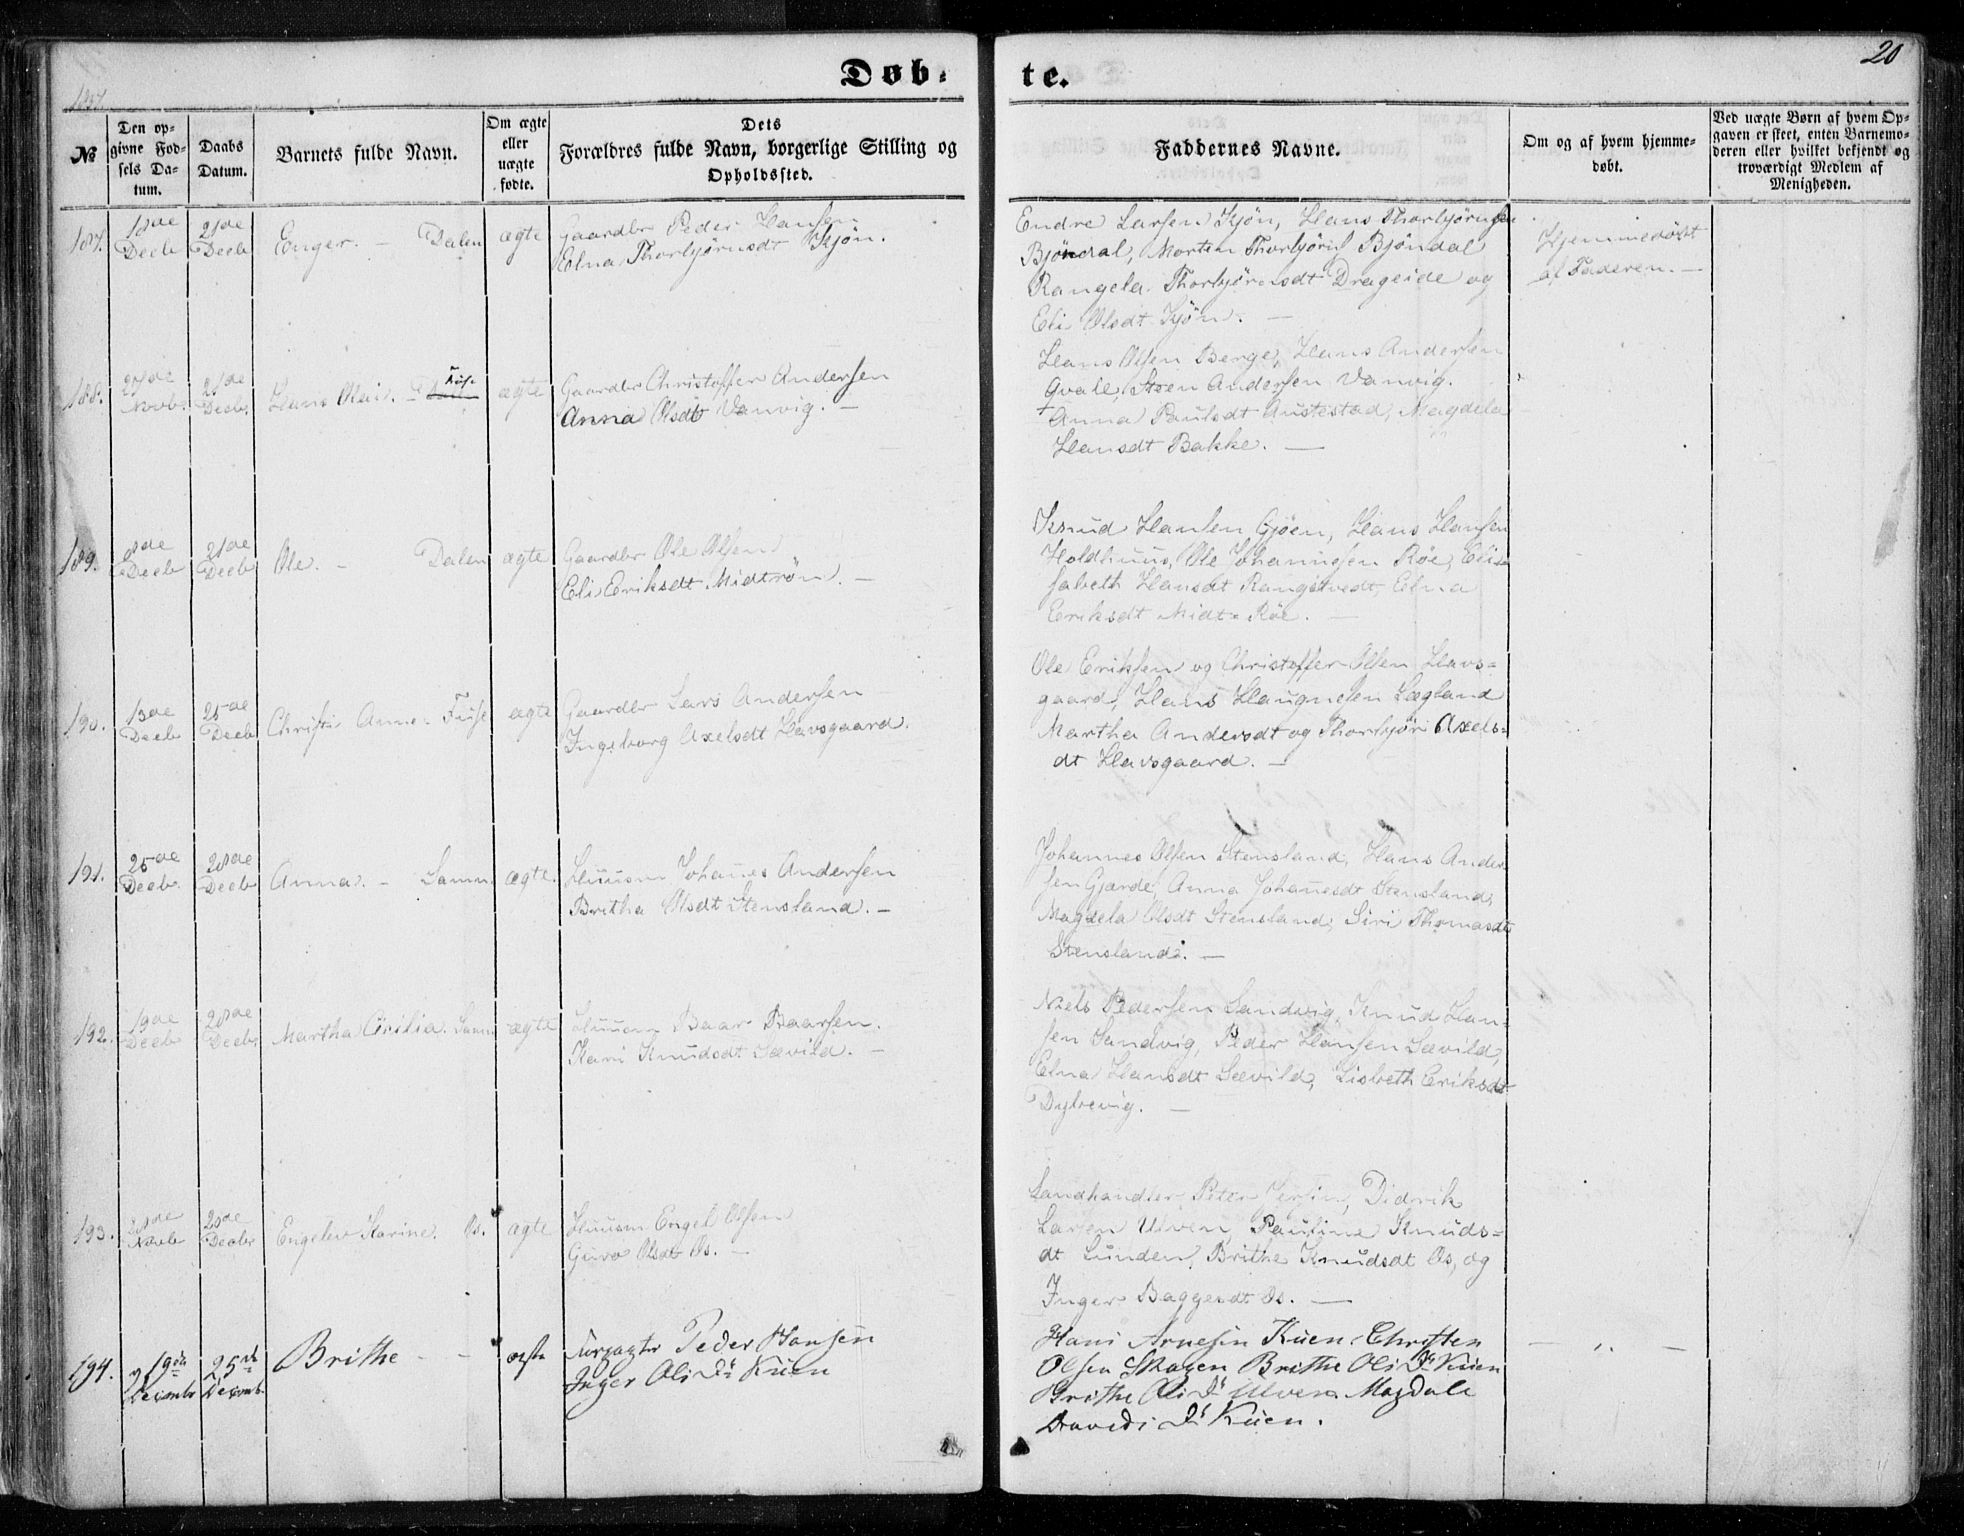 Døb-
te.
20
№
Den op-
givne Fød-
sels Da-
tum.
Daabs
Datum.
Barnets fulde Navn.
Om ægte
eller
uægte
fødte.
Dets
Forældres fulde Navn, borgerlige Stilling og
Opholdssted.
Faddernes Navne.
Om og af hvem hjemme-
døbt.
Ved uægte Børn af hvem Op-
gaven er skeet, enten Barnemo-
deren eller hvilket bekjendt og
troværdigt Medlem af
Menigheden.
187.
18de
Decb
21de
Decb
Enger. - Dalen
ægte
Gaardbr Peder Hansen
Elna Thorbjörnsdt Kjön.
Endre Larsen Kjön, Hans Thorbjörnsen
Björndal, Morten Thorbjörns Björndal
Rangela Thorbjörnsdt Drageide og
Eli Olsdt Kjön. -
Hjemmedöbt
af Faderen. -
188.
27de
Novb.
21de
Decb.
Hans Olai. - Fuse
ægte
Gaardbr Christoffer Andersen
Anna Olsdt Vanvig. -
Hans Olsen Berge, Hans Andersen
Qvale, Steen Andersen Vanvig.
Anna Paulsdt Austestad, Magdela
Hansdt Bakke. -
189.
8de
Decb
21de
Decb
Ole. - Dalen
ægte
Gaardbr Ole Olsen
Eli Eriksdt Midtrön. -
Knud Hansen Gjöen, Hans Hansen
Holdhuus, Ole Johannesen Röe, Elis-
sabeth Hansdt Rangstvedt, Elna
Eriksdt Midt-Röe. -
190.
13de
Decb
25de
Decb
Christi Anne. Fuse
ægte
Gaardbr Lars Andersen
Ingeborg Axelsdt Havsgaard.
Ole Eriksen og Christoffer Olsen Havs-
gaard, Hans Haugnesen Lægland
Martha Andersdt og Thorbjör Axels-
dt Havsgaard. -
191.
25de
Decb.
28de
Decb
Anna. - Samn.
ægte.
Huusm Johanes Andersen
Britha Olsdt Stensland. -
Johannes Olsen Stensland, Hans Ander
sen Gjærde, Anna Johanesdt Stensland,
Magdela Olsdt Stensland, Siri Thomasdt
Stensland. -
192.
19de
Decb
28de
Decb.
Martha Cecilia. Samn.
ægte
Huusm Baar Baarsen.
Kari Knudsdt Sævild. -
Niels Pedersen Sandvig, Knud Han-
sen Sandvig, Peder Hansen Sævild,
Elna Hansdt Sævild, Lisbeth Eriksdt
Dybevig. -
193.
28de
Novb
28de
Decbr
Engelev Karine. Os.
ægte
Huusm Engel Olsen
Guro Olsdt Os. -
Landhandler Peter Jersin, Didrik
Larsen Ulven, Pauline Knuds-
dt Lunden, Brithe Knudsdt Os, og
Inger Baggesdt Os. -
194.
19de
Decembr
25de
Decemb.
Brithe - -
ægte
Peder Hansen
Inger Olis Dr Kuen
Hans Arnesen Kuen, Christen
Olsen Skagen Brithe Olis Dr Kuen
Brithe Olis Dr Ulven Magdale
Davids Dr Kuen.
- „ -